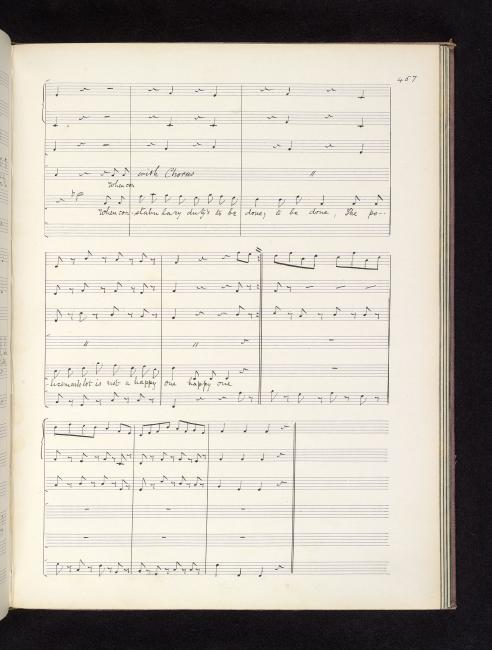 467
with Chorus
When con
When con-stabulary duty's to be done, to be done, The po-
-liceman's lot is not a happy one happy one